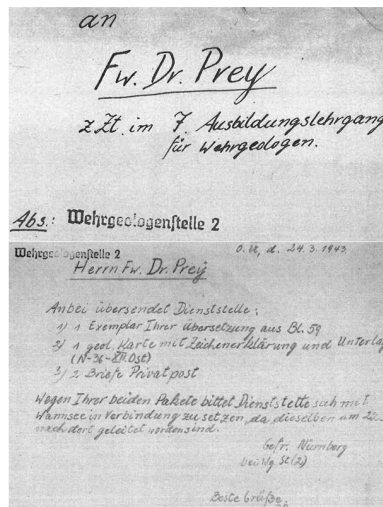 an
Fw. Dr. Prey
z.Zt. im 7. Ausbildungslehrgang
für Wehrgeologen.
Abs.: Wehrgeologenstelle 2
Wehrgeologenstelle 2
O.U., d. 24.3.1943
Herrn Fw. Dr. Prey
Anbei übersendet Dienststelle:
1) 1 Exemplar Ihrer Übersetzung aus Bl. 59
2) 1 geol. Karte mit Zeichenerklärung und Unterlag
(N-36-XII Ost)
3) 2 Briefe Privatpost
Wegen Ihrer beiden Pakete bittet Dienststelle sich mit
Wannsee in Verbindung zu setzen, da dieselben am
nach dort geleitet worden sind.
Gefr. Nürnberg
bei Wg. St(2)
Beste Grüße,